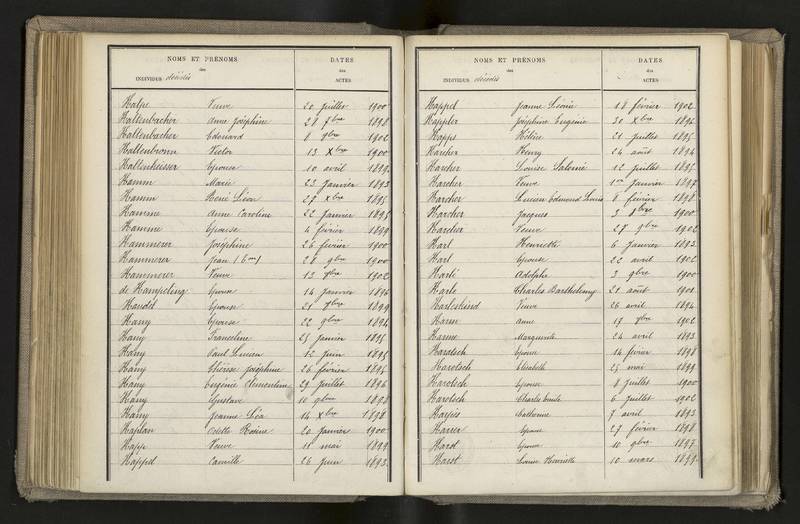 NOMS ET PRÉNOMS
des
INDIVIDUS décédés
DATES
des
ACTES
Halpe Veuve 20 juillet 1900
Haltenbacher Anne Joséphine 28 7bre 1898
Haltenbacher Edouard 8 9bre 1902
Haltenbronn Victor 13 Xbre 1900
Epouse 10 avril 1899
Hamm Marie 23 Janvier 1893
Hamm René Léon 27 Xbre 1895
Hamme Anne Caroline 22 Janvier 1895
Hamme Epouse 4 février 1899
Hammerer Joséphine 26 février 1900
Hammerer Jean 28 9bre 1900
Hammerer Veuve 13 1902
de Hampeling Epouse 14 Janvier 1896
Handel Epouse 21 1899
Hany Epouse 22 9bre 1894
Hany Franceline 25 Janvier 1895
Hany Paul Lucien 12 Juin 1895
Hany Thérèse Joséphine 26 février 1895
Hany Eugénie Clémentine 29 Juillet 1896
Hany Gustave 10 9bre 1898
Hany Jeanne Léa 14 Xbre 1898
Haplan Odette Rosine 20 Janvier 1900
Happ Veuve 11 mai 1899
Happel Camille 26 Juin 1893
NOMS ET PRÉNOMS
des
INDIVIDUS décédés
DATES
des
ACTES
Happel Jeanne Léonie 18 février 1902
Happler Joséphine Eugénie 30 Xbre 1896
Happs Hélène 21 Juillet 1895
Harcher Henry 24 août 1894
Harcher Louise Salomé 12 Juillet 1895
Harcher Veuve 1er Janvier 1897
Harcher Lucien Edmond Louis 8 février 1898
Harcher Jacques 3 1900
Harcher Veuve 27 9bre 1902
Harl Henriette 6 Janvier 1893
Harl Epouse 22 avril 1902
Harlé Adolphe 3 9bre 1900
Harlé Charles Barthélemy 21 août 1901
Harleskind Veuve 26 avril 1894
Harm Anne 19 1902
Harme Marguerite 24 avril 1893
Harotsch Epouse 14 février 1898
Harotsch Elisabeth 25 mai 1899
Harotsch Epouse 8 Juillet 1900
Harotsch Charles Emile 6 Juillet 1902
Catherine 7 avril 1893
Epouse 27 février 1898
Epouse 10 9bre 1897
Harst Louise Henriette 10 mars 1899